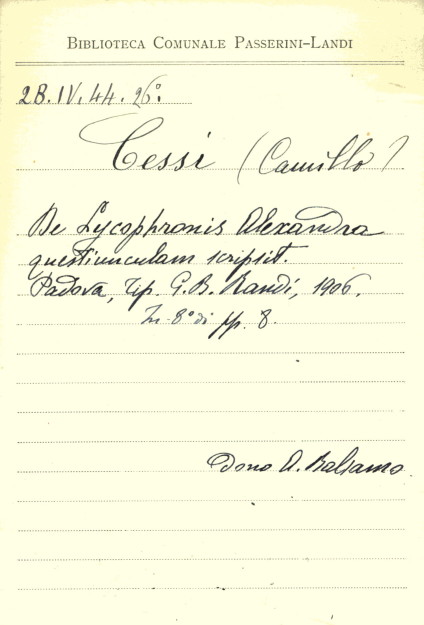 BIBLIOTECA COMUNALE PASSERINI-LANDI
2B.IV.44.26°.
Cessi (Camillo)
De Lycophronis Alexandra
questiunculam scripsit.
Padova, Tip. G. B. Randi, 1906.
In-8° di pp. 8.
Dono A. Balsamo.